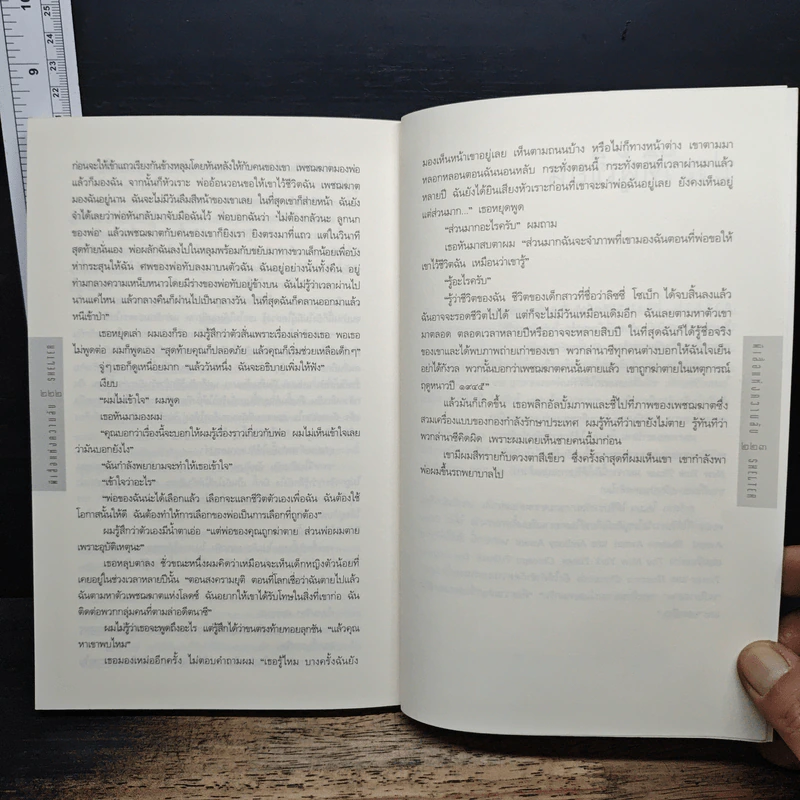 ก่อนจะให้เข้าแถวเรียงกันข้างหลุมโดยหันหลังให้กับคนของเขา เพชฌฆาตมองพ่อ
แล้วก็มองฉัน จากนั้นก็หัวเราะ พ่ออ้อนวอนขอให้เขาไว้ชีวิตฉัน เพชฌฆาต
มองฉันอยู่นาน ฉันจะไม่มีวันลืมสีหน้าของเขาเลย ในที่สุดเขาก็ส่ายหน้า ฉันยัง
จำได้เลยว่าพ่อหันกลับมาจับมือฉันไว้ พ่อบอกฉันว่า 'ไม่ต้องกลัวนะ ลูกนก
ของพ่อ' แล้วเพชฌฆาตกับคนของเขาก็ยิงเรา ยิงตรงมาที่แถว แต่ในวินาที
สุดท้ายนั่นเอง พ่อผลักฉันลงไปในหลุมพร้อมกับขยับมาทางขวาเล็กน้อยเพื่อบัง
ห่ากระสุนให้ฉัน ศพของพ่อทับลงมาบนตัวฉัน ฉันอยู่อย่างนั้นทั้งคืน อยู่
ท่ามกลางความเหน็บหนาวโดยมีร่างของพ่อทับอยู่ข้างบน ฉันไม่รู้ว่าเวลาผ่านไป
นานแค่ไหน แล้วกลางคืนก็ผ่านไปเป็นกลางวัน ในที่สุดฉันก็คลานออกมาแล้ว
หนีเข้าป่า"
เธอหยุดเล่า ผมเองก็รอ ผมรู้สึกว่าตัวสั่นเพราะเรื่องเล่าของเธอ พอเธอ
ไม่พูดต่อ ผมก็พูดเอง "สุดท้ายคุณก็ปลอดภัย แล้วคุณก็เริ่มช่วยเหลือเด็กๆ"
จู่ๆ เธอก็ดูเหนื่อยมาก "แล้ววันหนึ่ง ฉันจะอธิบายเพิ่มให้ฟัง"
เงียบ
"ผมไม่เข้าใจ" ผมพูด
เธอหันมามองผม
"คุณบอกว่าเรื่องนี้จะบอกให้ผมรู้เรื่องราวเกี่ยวกับพ่อ ผมไม่เห็นเข้าใจเลย
ว่ามันบอกยังไง"
"ฉันกำลังพยายามจะทำให้เธอเข้าใจ"
"เข้าใจว่าอะไร"
"พ่อของฉันน่ะได้เลือกแล้ว เลือกจะแลกชีวิตตัวเองเพื่อฉัน ฉันต้องใช้
โอกาสนั้นให้ดี ฉันต้องทำให้การเลือกของพ่อเป็นการเลือกที่ถูกต้อง"
ผมรู้สึกว่าตัวเองมีน้ำตาเอ่อ "แต่พ่อของคุณถูกฆ่าตาย ส่วนพ่อผมตาย
เพราะอุบัติเหตุนะ"
เธอหลุบตาลง ชั่วขณะหนึ่งผมคิดว่าเหมือนจะเห็นเด็กหญิงตัวน้อยที่
เคยอยู่ในช่วงเวลาหลายปีนั้น "ตอนสงครามยุติ ตอนที่โลกเชื่อว่าฉันตายไปแล้ว
ฉันตามหาตัวเพชฌฆาตแห่งโลดซ์ ฉันอยากให้เขาได้รับโทษในสิ่งที่เขาก่อ ฉัน
ติดต่อพวกกลุ่มคนที่ตามล่าอดีตนาซี"
ผมไม่รู้ว่าเธอจะพูดถึงอะไร แต่รู้สึกได้ว่าขนตรงท้ายทอยลุกชัน "แล้วคุณ
หาเขาพบไหม"
เธอมองเหม่ออีกครั้ง ไม่ตอบคำถามผม "เธอรู้ไหม บางครั้งฉันยัง
ผีเสื้อแห่งความลับ ๒๒๒ SHELTER
มองเห็นหน้าเขาอยู่เลย เห็นตามถนนบ้าง หรือไม่ก็ทางหน้าต่าง เขาตามมา
หลอกหลอนตอนฉันนอนหลับ กระทั่งตอนนี้ กระทั่งตอนที่เวลาผ่านมาแล้ว
หลายปี ฉันยังได้ยินเสียงหัวเราะก่อนที่เขาจะฆ่าพ่อฉันอยู่เลย ยังคงเห็นอยู่
แต่ส่วนมาก..." เธอหยุดพูด
"ส่วนมากอะไรครับ" ผมถาม
เธอหันมาสบตาผม "ส่วนมากฉันจะจำภาพที่เขามองฉันตอนที่พ่อขอให้
เขาไว้ชีวิตฉัน เหมือนว่าเขารู้"
"รู้อะไรครับ"
"รู้ว่าชีวิตของฉัน ชีวิตของเด็กสาวที่ชื่อว่าลิซซี่ โซเบ็ก ได้จบสิ้นลงแล้ว
ฉันอาจจะรอดชีวิตไปได้ แต่ก็จะไม่มีวันเหมือนเดิมอีก ฉันเลยตามหาตัวเขา
มาตลอด ตลอดเวลาหลายปีหรืออาจจะหลายสิบปี ในที่สุดฉันก็ได้รู้ชื่อจริง
ของเขาและได้พบภาพถ่ายเก่าของเขา พวกล่านาซีทุกคนต่างบอกให้ฉันใจเย็น
อย่าได้กังวล พวกนั้นบอกว่าเพชฌฆาตคนนั้นตายแล้ว เขาถูกฆ่าตายในเหตุการณ์
ฤดูหนาวปี ๑๙๔๕"
แล้วมันก็เกิดขึ้น เธอพลิกอัลบั้มภาพและชี้ไปที่ภาพของเพชฌฆาตซึ่ง
สวมเครื่องแบบของกองกำลังรักษาประเทศ ผมรู้ทันทีว่าเขายังไม่ตาย รู้ทันทีว่า
พวกล่านาซีคิดผิด เพราะผมเคยเห็นชายคนนี้มาก่อน
เขามีผมสีทรายกับดวงตาสีเขียว ซึ่งครั้งล่าสุดที่ผมเห็นเขา เขากำลังพา
พ่อผมขึ้นรถพยาบาลไป
ผีเสื้อแห่งความลับ ๒๒๓ SHELTER
10
9
25
24
23
22